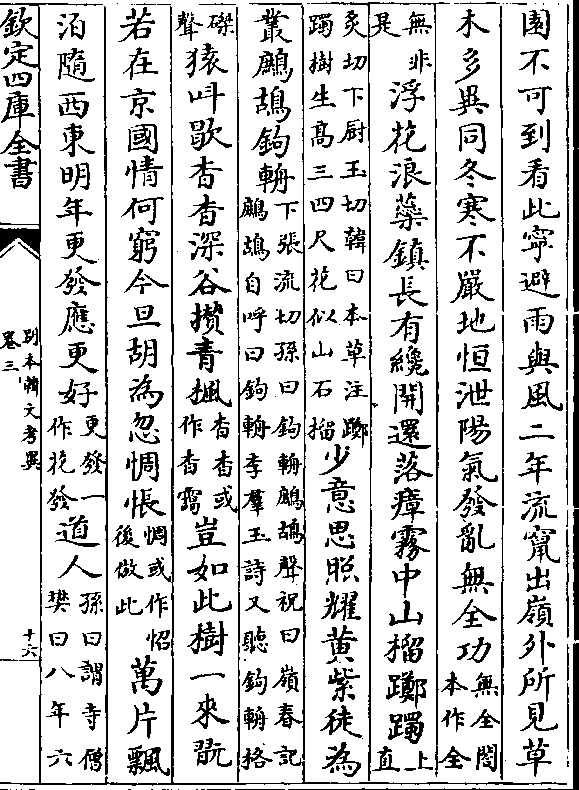 園不可到看此寧避雨與風二年流竄出嶺外所見草
木多異同冬寒不嚴地恒泄陽氣發亂無全功無全閣本作全
無非是浮花浪蘂鎮長有纔開還落瘴霧中山榴躑躅上直
炙切下厨玉切韓曰本草注躑躅樹生高三四尺花似山石榴少意思照耀黄紫徒為
叢鷓鴣鉤輈下張流切孫曰鉤輈鷓鴣聲祝曰嶺春記鷓鴣自呼曰鉤輈李羣玉詩又聽鉤輈格
磔聲猿呌歇杳杳深谷攅青楓杳杳或作杳靄豈如此樹一來翫
若在京國情何窮今旦胡為忽惆悵惆或作怊後倣此萬片飄
泊隨西東明年更發應更好更發一作花發道人孫曰謂寺僧樊曰八年六
欽定四庫全書
別本韓文考異
卷三
十六